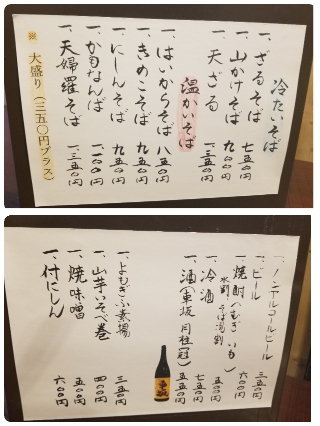 冷たいそば
一、ざるそば 七五〇円
一、山かけそば 九〇〇円
一、天ざる 一、三五〇円
温かいそば
一、はいからそば 八五〇円
一、きのこそば 九五〇円
一、にしんそば 九五〇円
一、かもなんば 一、二〇〇円
一、天婦羅そば 一、三五〇円
※大盛り（三五〇円プラス）
一、ノンアルコールビール 三五〇円
一、ビール 六〇〇円
一、焼酎（むぎ いも）
水割 そば湯割 五五〇円
一、冷酒 七五〇円
一、酒（車坂 月桂冠） 五五〇円
一、よもぎふ素揚 三五〇円
一、山芋いそべ巻 四〇〇円
一、焼味噌 五〇〇円
一、付にしん 六〇〇円